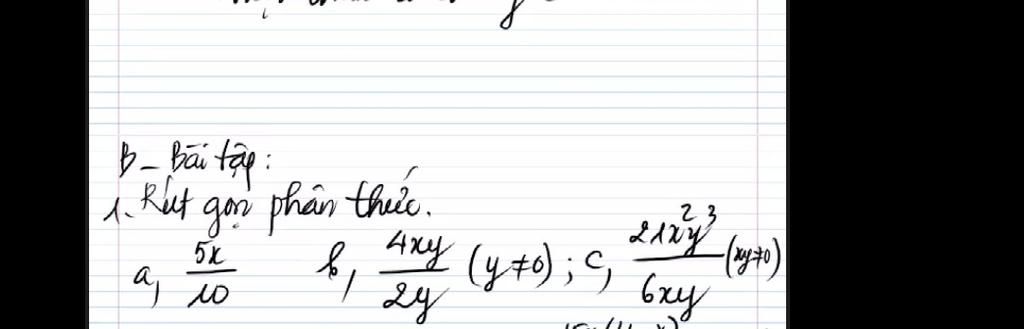 B - Bài tập:
1. Rút gọn phân thức.
a, 5x/10 b, 4xy/2y (y≠0); c, 21x²y³/6xy (xy≠0)